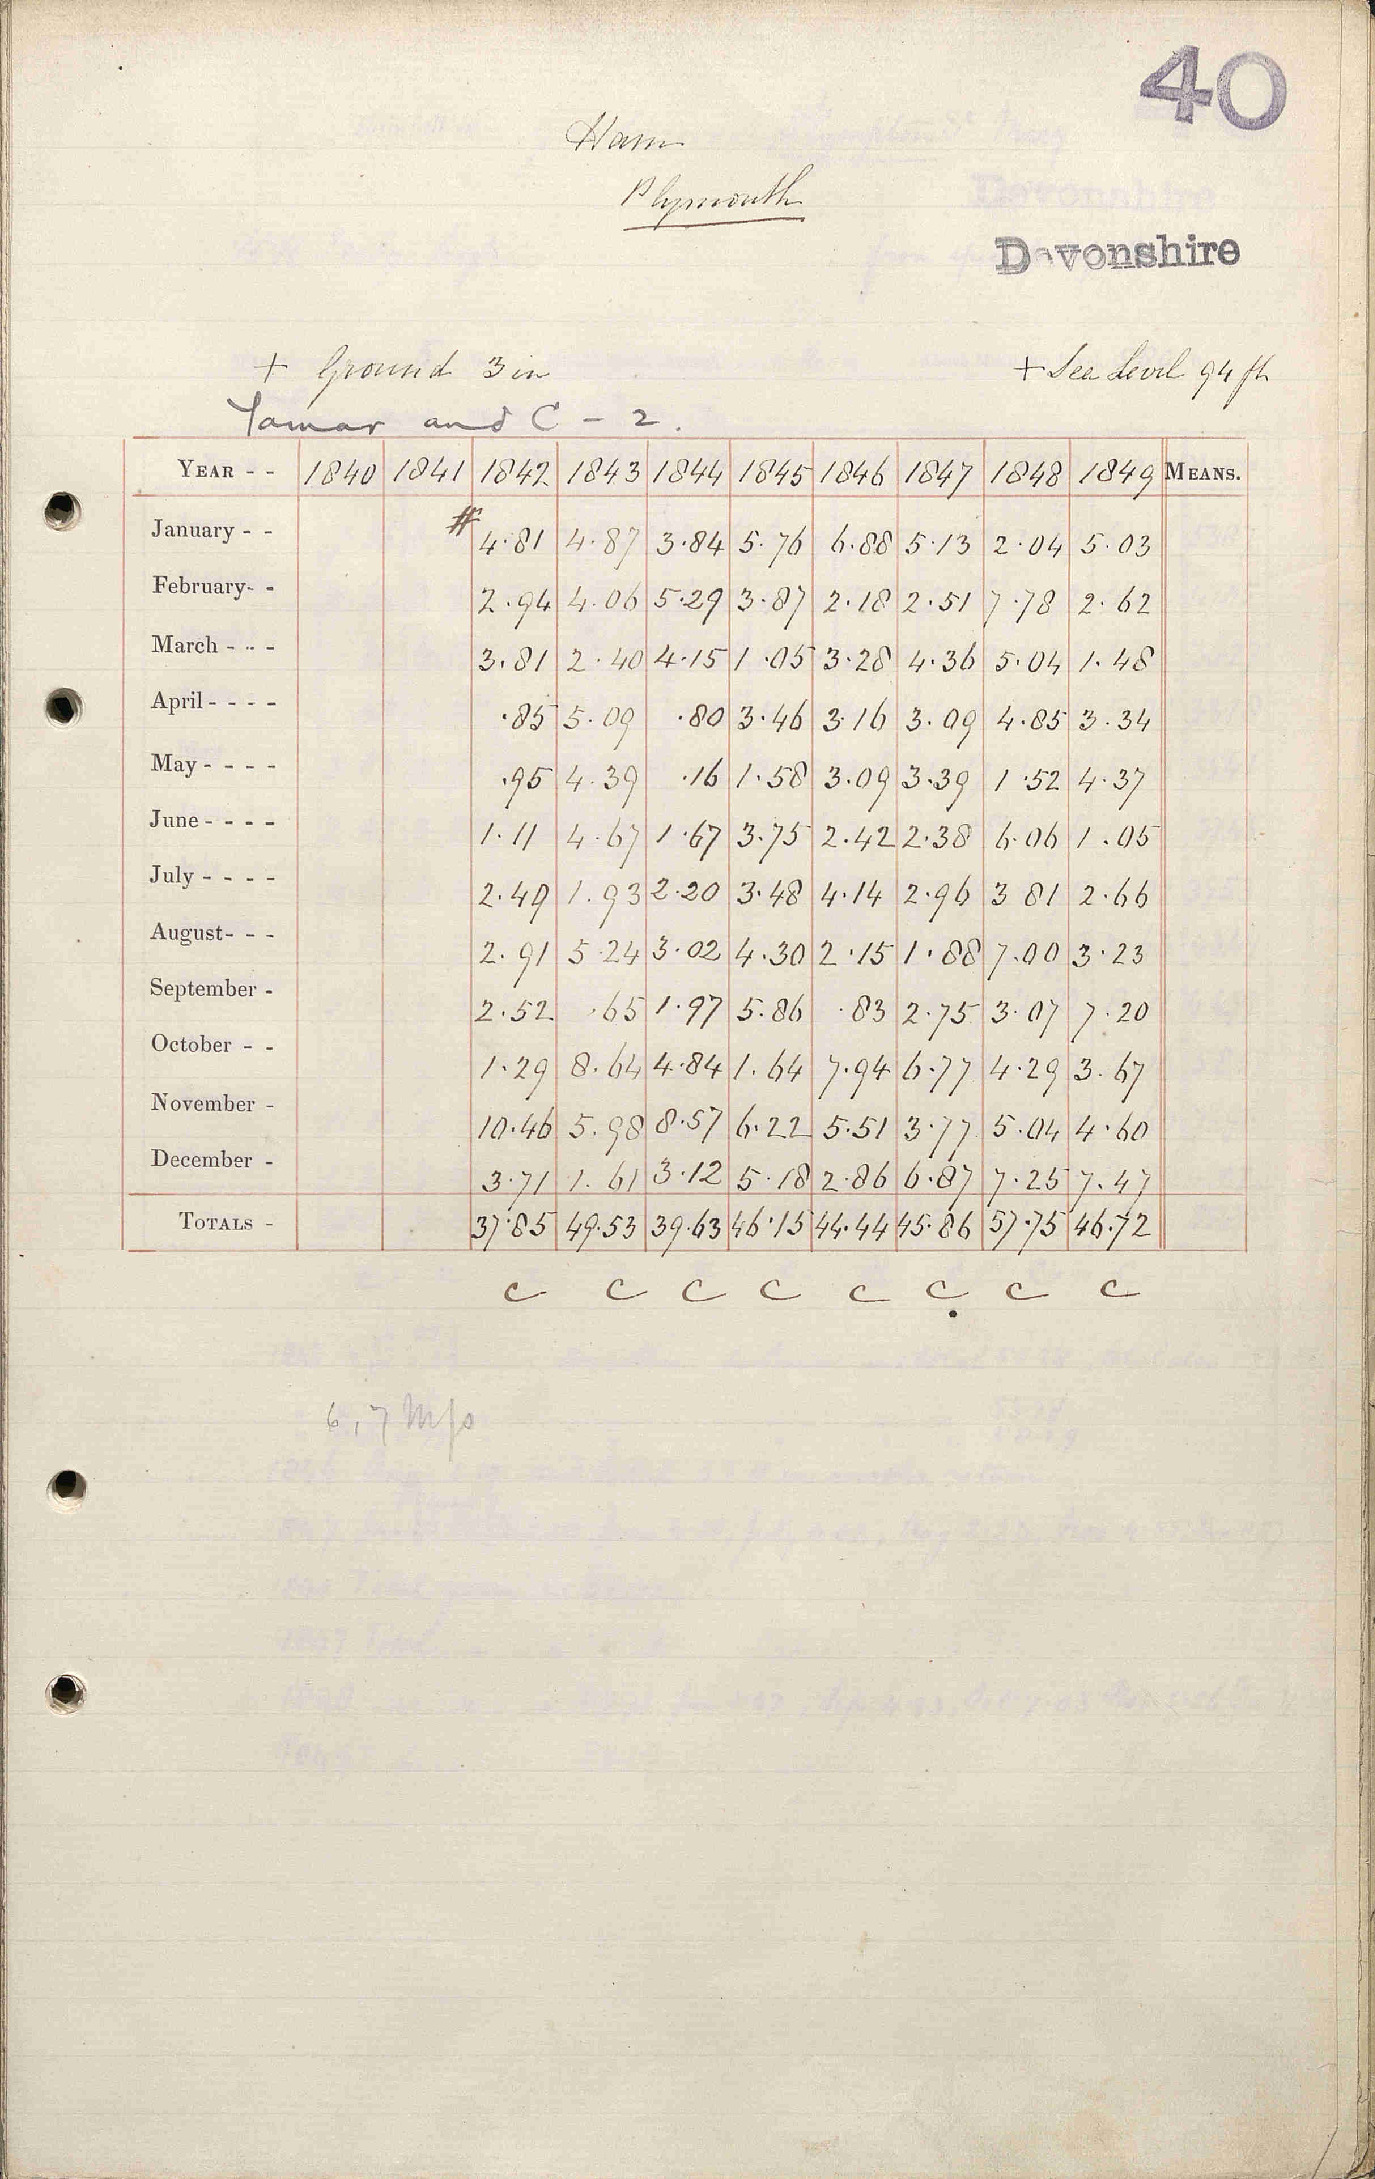 40
Ham
Plymouth
Devonshire
+ Ground 3 in + Sea Level 94 ft
Tamar and C - 2.
YEAR - - 1840 1841 1842 1843 1844 1845 1846 1847 1848 1849 MEANS.
January - - # 4.81 4.87 3.84 5.76 6.88 5.13 2.04 5.03
February- - 2.94 4.06 5.29 3.87 2.18 2.51 7.78 2.62
March - - - 3.81 2.40 4.15 1.05 3.28 4.36 5.04 1.48
April - - - - .85 5.09 .80 3.46 3.16 3.09 4.85 3.34
May - - - - .95 4.39 .16 1.58 3.09 3.39 1.52 4.37
June - - - - 1.11 4.67 1.67 3.75 2.42 2.38 6.06 1.05
July - - - - 2.49 1.93 2.20 3.48 4.14 2.96 3 81 2.66
August- - - 2.91 5.24 3.02 4.30 2.15 1.88 7.00 3.23
September - 2.52 .65 1.97 5.86 .83 2.75 3.07 7.20
October - - 1.29 8.64 4.84 1.64 7.94 6.77 4.29 3.67
November - 10.46 5.98 8.57 6.22 5.51 3.77 5.04 4.60
December - 3.71 1.61 3.12 5.18 2.86 6.87 7.25 7.47
TOTALS - 37.85 49.53 39.63 46.15 44.44 45.86 57.75 46.72
c c c c c c c c